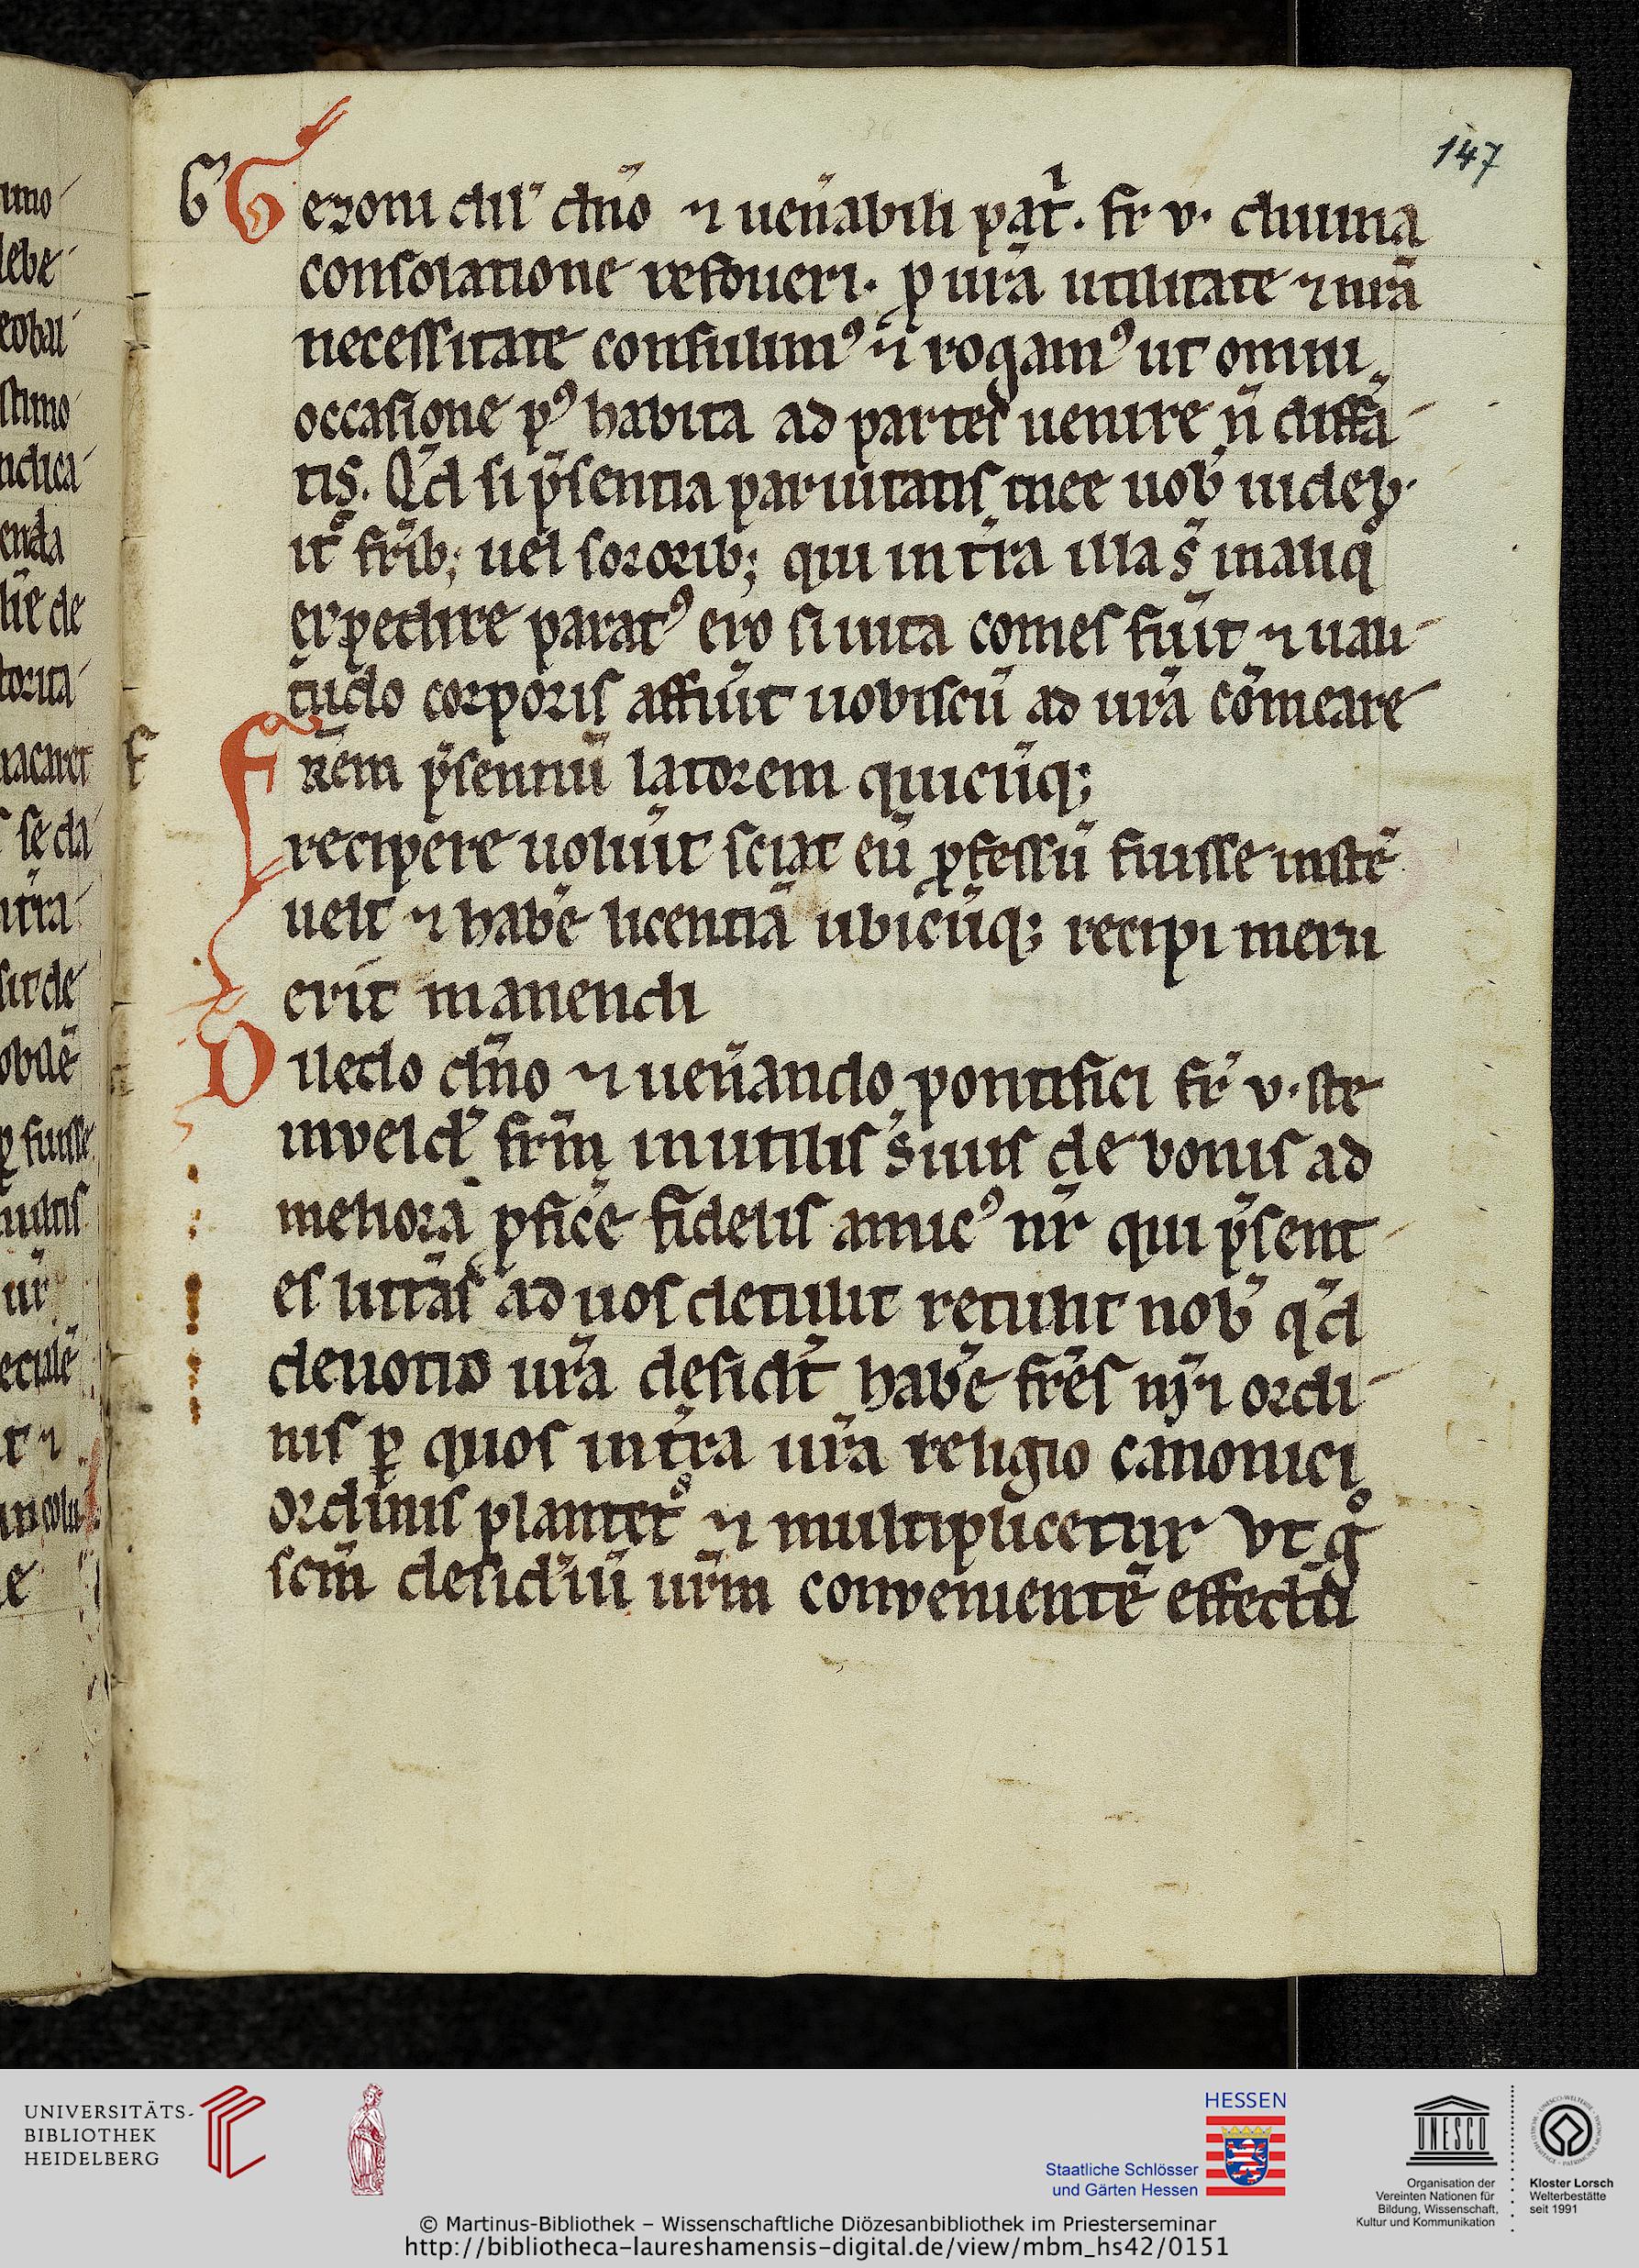 147
G Gezoni dil̄ dn̄o ⁊ uen̄abili pat̄. fr̄ v. diuina
consolatione refoueri. ꝓ ur̄a utilitate ⁊ nr̄a
necessitate consulimꝰ ⁊ rogamꝰ ut omni
occasione pꝰ habita ad partes uenire n̄ diffā
tis. Qd̄ si p̄sentia paruitatis mee uob̄ uideb
it᷑ fr̄ib; uel sororib; qui int̄ra illa s̄
expedire paratꝰ ero si uita comes fuīt ⁊ uali
tudo corporis affuīt uobiscū ad ur̄ā cōmeare
F Fr̄em p̄sentiū latorem quicūq;
recipere uoluīt sciat eū ꝓfessū fuisse
uelt ⁊ habē licentiā ubicūq; recipi meru
erit manendi
O lledo dn̄o ⁊ uen̄ando pontifici fr̄ v. ste
inveld̄ fr̄m inutilis s̄uus de bonis ad
meliorā ꝓficē fidelis amicꝰ nr̄ qui p̄sent
es litt̄as ad uos detulit retulit nob̄ qd̄
deuotio ur̄a desid̄t habē fr̄es nr̄i ordi
nis ꝑ quos int̄ra ur̄ā religio canonici
ordinis plantet᷑ ⁊ multiplicetur vt gͦ
scm̄ desid̄iū ur̄m convenientē effectū
UNIVERSITÄTS-
BIBLIOTHEK
HEIDELBERG
HESSEN
Staatliche Schlösser
und Gärten Hessen
UNESCO
Organisation der
Vereinten Nationen für
Bildung, Wissenschaft,
Kultur und Kommunikation
Kloster Lorsch
Welterbestätte
seit 1991
© Martinus-Bibliothek – Wissenschaftliche Diözesanbibliothek im Priesterseminar
http://bibliotheca-laureshamensis-digital.de/view/mbm_hs42/0151